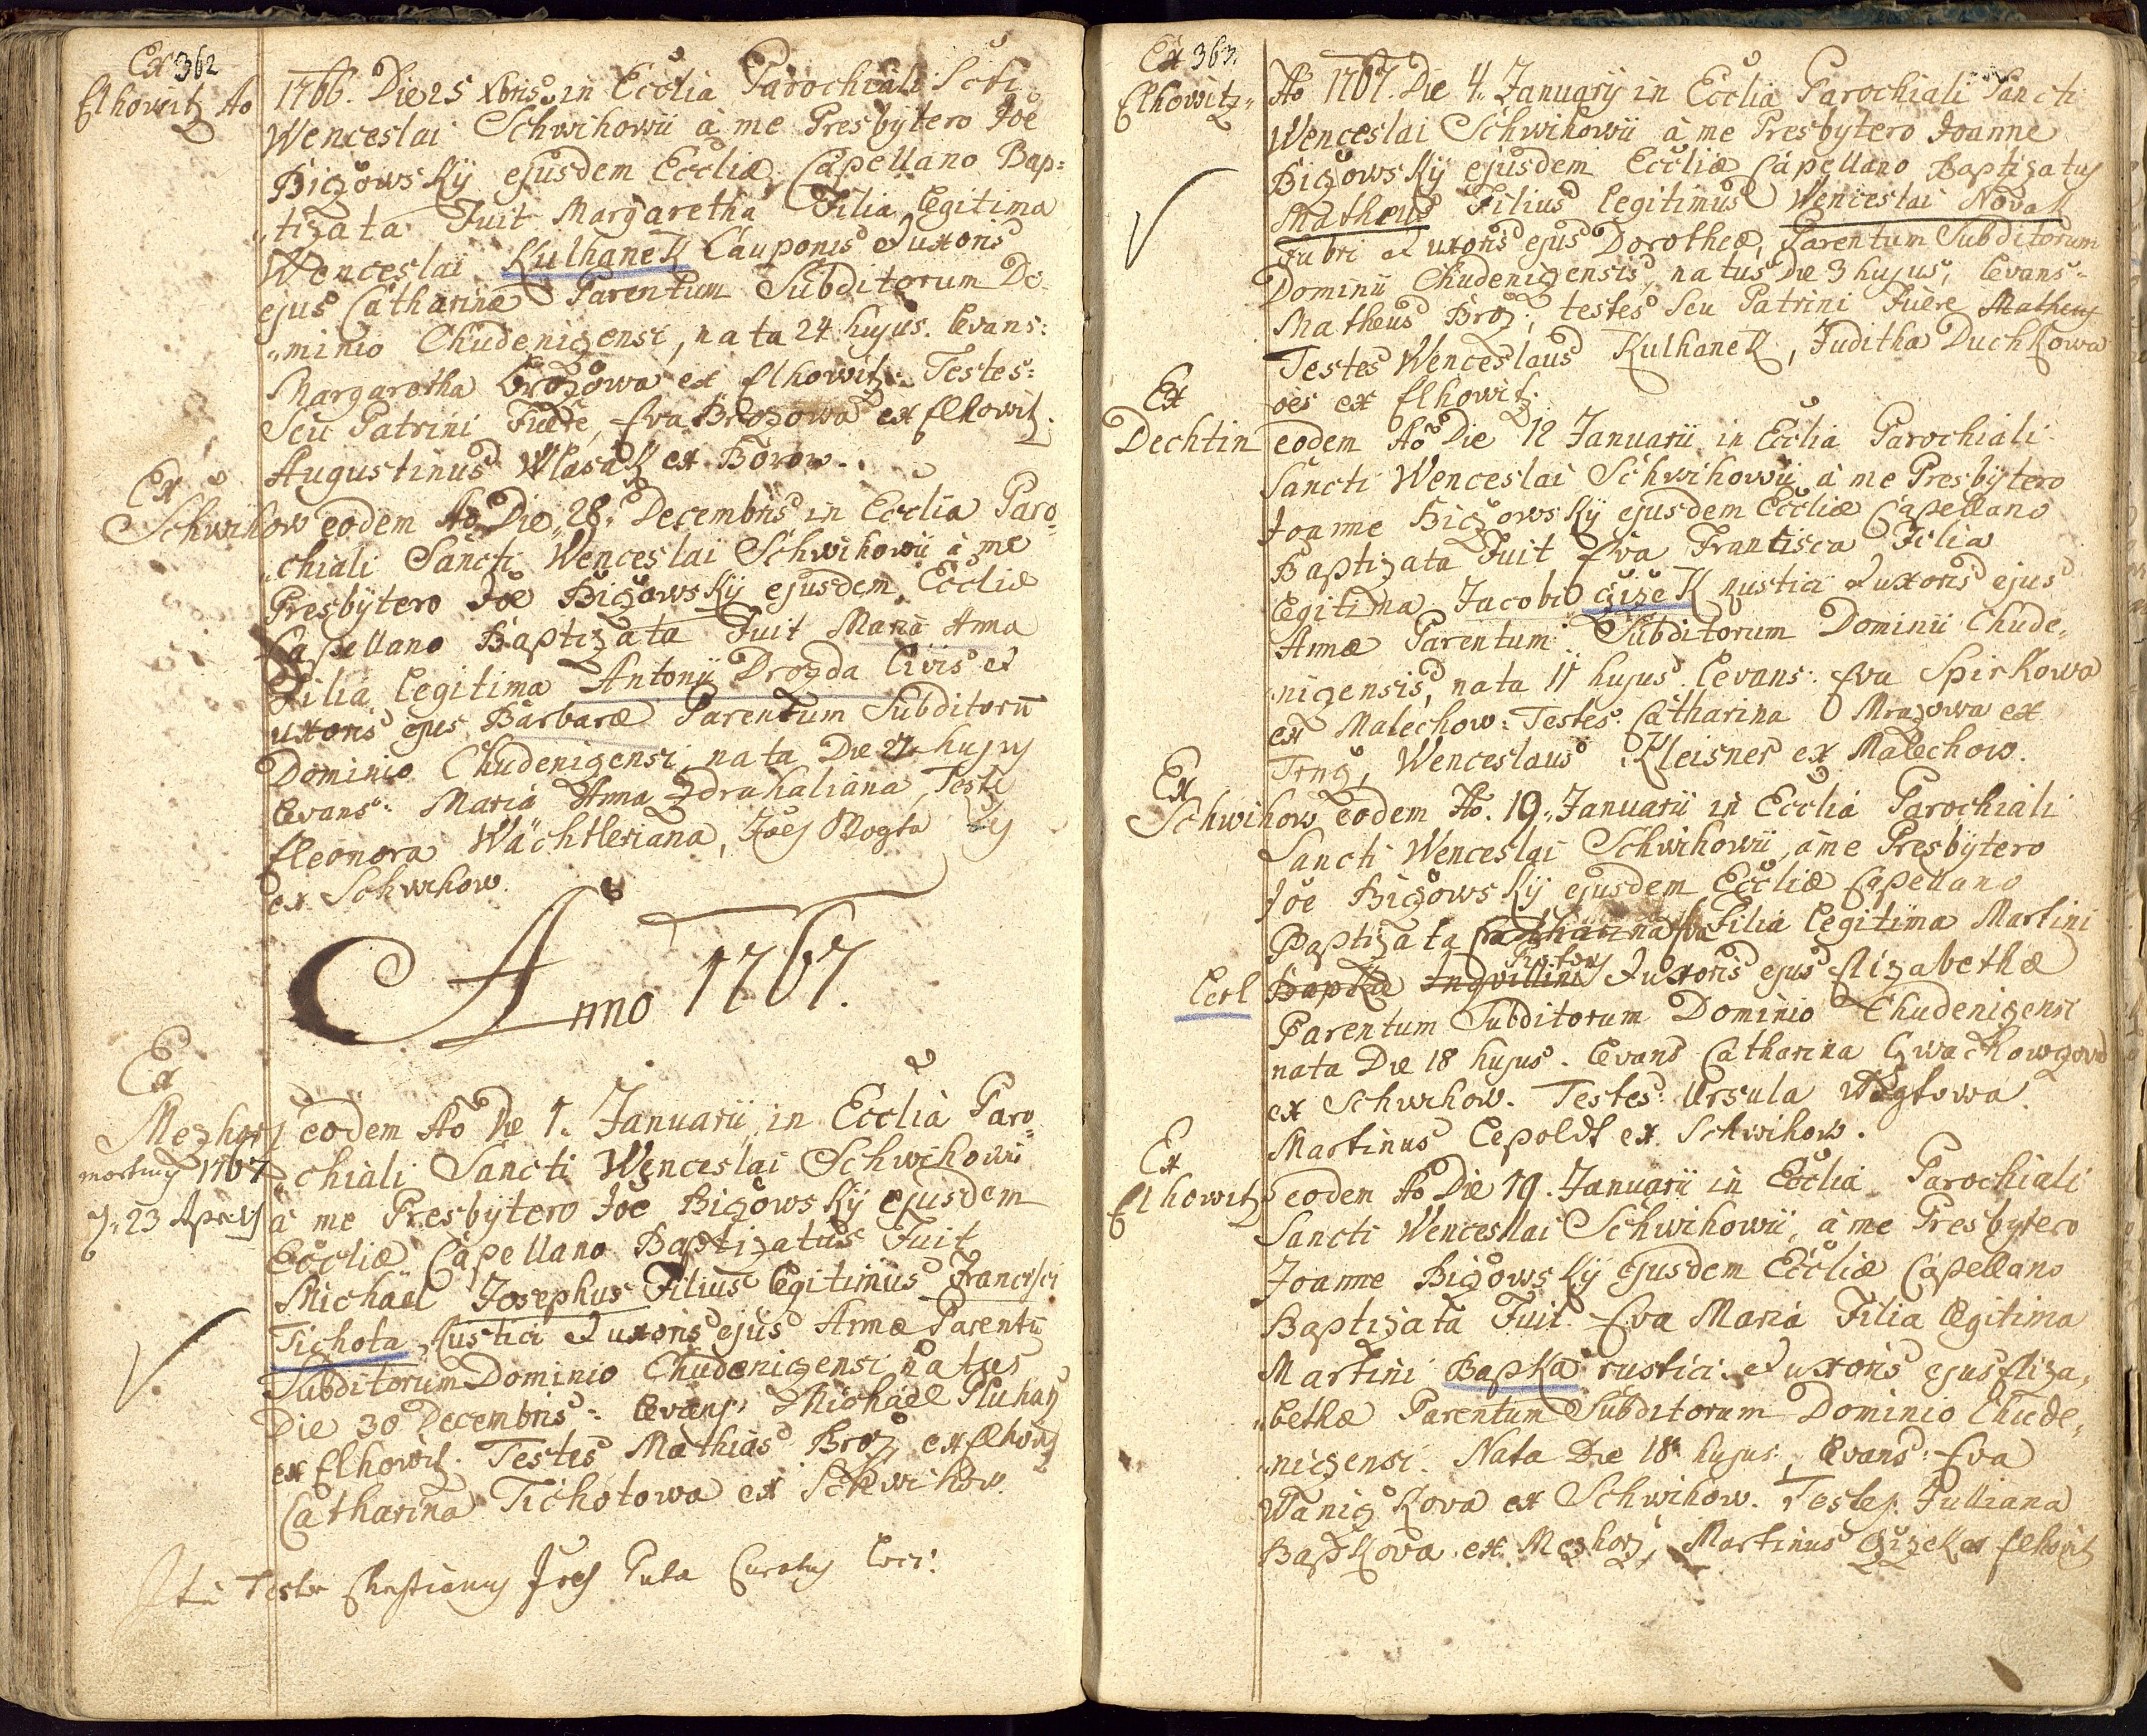 Ex 362
Elhowitz Ao 1766. Die 25 Xbris in Ecclia Parochiali Scti
Wenceslai Schwihowii à me Presbytero Joe
Bizowskÿ ejusdem Eccliæ Capellano Bap:
tizata Fuit Margaretha Filia legitima
Wenceslai Kulhanek Cauponis et uxoris
ejus Catharinæ Parentum Subditorum Do:
minio Chudenizensi, nata 24 hujus. levans:
Margaretha Brozowa ex Elhowitz. Testes:
Seu Patrini Fuere, Eva Brozowa ex Elhowitz.
Augustinus Wlasak ex Borow.
Ex
Schwihow eodem Ao Die 28. Decembris in Ecclia Paro
chiali Sancti Wenceslai Schwihowii à me
Presbytero Joe Bizowskÿ ejusdem Eccliæ
Capellano Baptizata Fuit Maria Anna
Filia legitima Antonii Drozda Civis et
uxoris ejus Barbaræ Parentum Subditorū
Dominio Chudenizensi, nata Die 27 hujus
levans: Maria Anna Zdrahaliana, Teste
Eleonora Wächtleriana, Joes Vogta
ex Schwihow.
Anno 1767.
Ex
Mezhorz eodem Ao Die 1. Januarii in Ecclia Paro
mortuus 1767 chiali Sancti Wenceslai Schwihowii
23 Aprilis à me Presbytero Joe Bizowskÿ ejusdem
Eccliæ Capellano Baptizatus Fuit
Michäel Josephus Filius legitimus Francisci
Tichota Rustici et uxoris ejus Annæ Parentū
Subditorum Dominio Chudenizensi natus
Die 30 Decembris: levans: Michäel Pluhar
ex Elhowitz. Testes Mathias Broz ex Elhowitz
Catharina Tichotowa ex Schwihow.
Ita Testor Christianus Curatus loci.
Ex 363.
Elhowitz Ao 1767. Die 4. Januarÿ in Ecclia Parochiali Sancti
Wenceslai Schwihowii à me Presbytero Joanne
Bizowskÿ ejusdem Eccliæ Capellano Baptizatus
Matheus Filius legitimus Wenceslai Novak
Fabri et uxoris ejus Dorotheæ, Parentum Subditorum
Dominii Chudenizensis, natus Die 3 hujus, levans:
Matheus Broz; testes seu Patrini Fuere Matheus
Testes Wenceslaus Kulhanek, Juditha Duchkowa
oes ex Elhowitz.
Ex
Dechtin eodem Ao Die 12 Januarii in Ecclia Parochiali
Sancti Wenceslai Schwihowii à me Presbytero
Joanne Bizowskÿ ejusdem Eccliæ Capellano
Baptizata Fuit Eva Frantisca Filia
legitima Jacobi Cizek rustici et uxoris ejus
Annæ Parentum Subditorum Dominii Chude,
nizensis, nata 11 hujus. levans: Eva Spirkowa
ex Malechow: Testes: Catharina Mrazowa ex
Trnz, Wenceslaus Kleisner ex Malechow.
Ex
Schwihow eodem Ao. 19. Januarii in Ecclia Parochiali
Sancti Wenceslai Schwihowii, à me Presbytero
Joe Bizowskÿ ejusdem Eccliæ Capellano
Baptizata Catharina Eva Filia legitima Martini
Lerl Bapka Inquilini et uxoris ejus Elizabethæ
Parentum Subditorum Dominio Chudenizensi
nata Die 18 hujus. levans Catharina
ex Schwihow. Testes: Ursula Wogtowa
Martinus Lepoldt ex Schwihow.
Ex
Elhowitz eodem Ao Die 19. Januarii in Ecclia Parochiali
Sancti Wenceslai Schwihowii, à me Presbytero
Joanne Bizowskÿ ejusdem Eccliæ Capellano
Baptizata Fuit Eva Maria Filia legitima
Martini Bapka rustici et uxoris ejus Eliza,
bethæ Parentum Subditorum Dominio Chude,
nizensi. Nata Die 18 hujus, levans: Eva
Wanizkova ex Schwihow. Testes: Julliana
Bapkova ex Mezhorz, Martinus Cizek ex Elhowitz